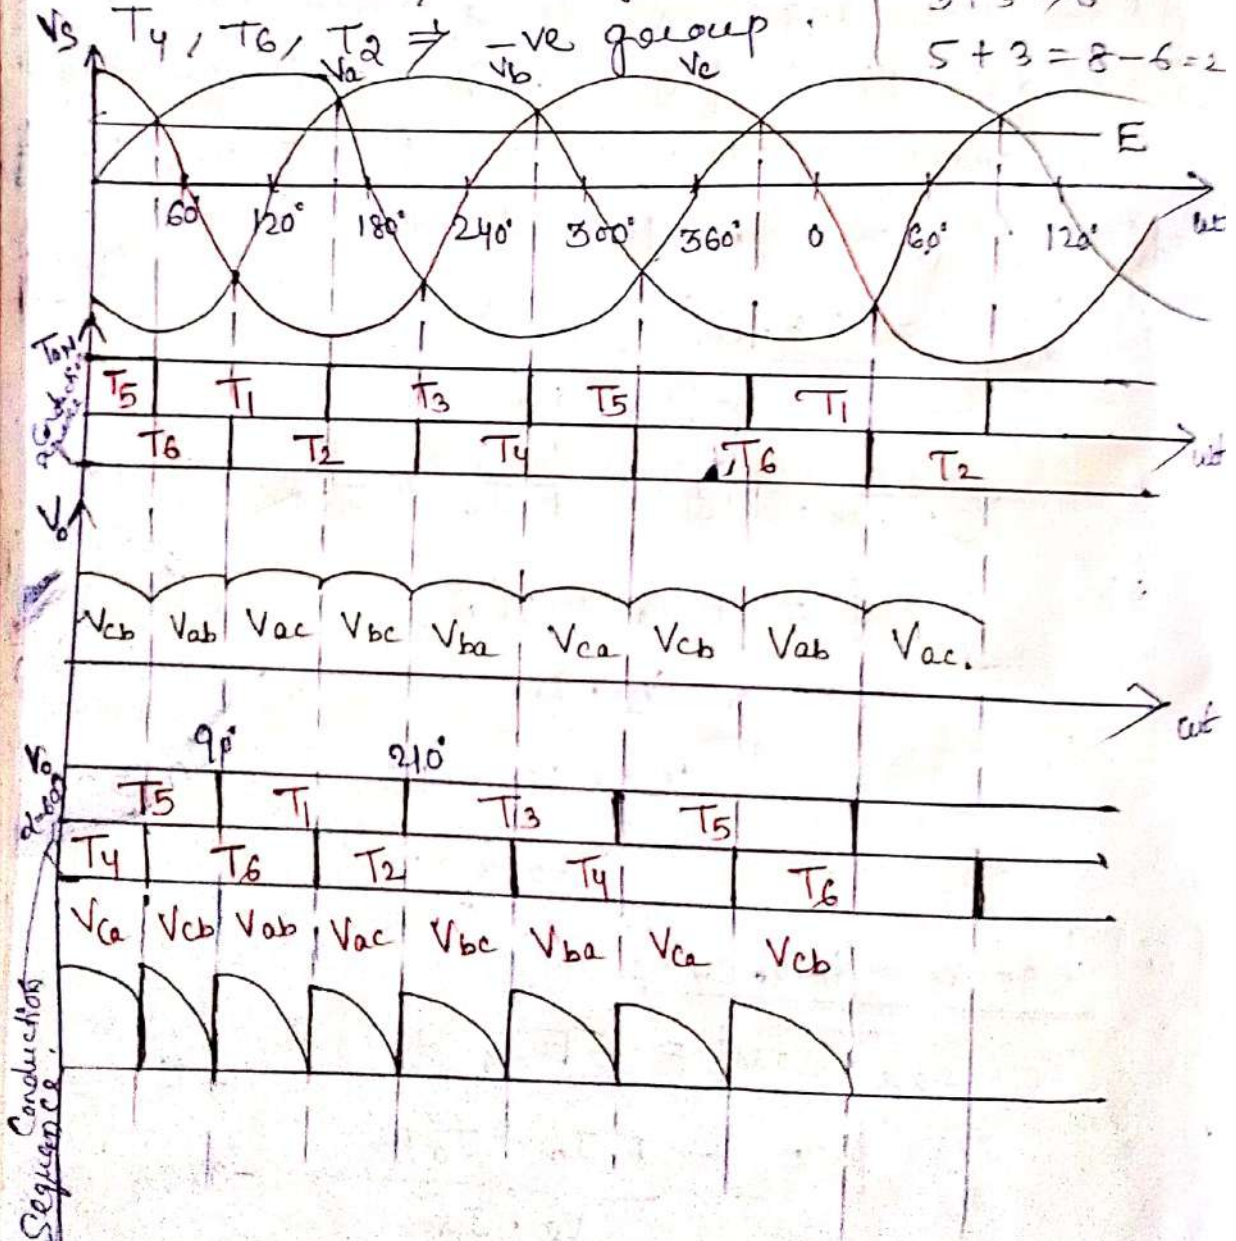 T4, T6, T2 ⇒ -ve group.
5 + 3 = 8 - 6 = 2
Vs
Va Vb Vc
E
60° 120° 180° 240° 300° 360° 0 60° 120°
ωt
T5 T1 T3 T5 T1
T6 T2 T4 T6 T2
ωt
Vo
Vcb Vab Vac Vbc Vba Vca Vcb Vab Vac.
ωt
90° 210°
Vo
T5 T1 T3 T5
T4 T6 T2 T4 T6
Vca Vcb Vab Vac Vbc Vba Vca Vcb
Conduction
Sequance.